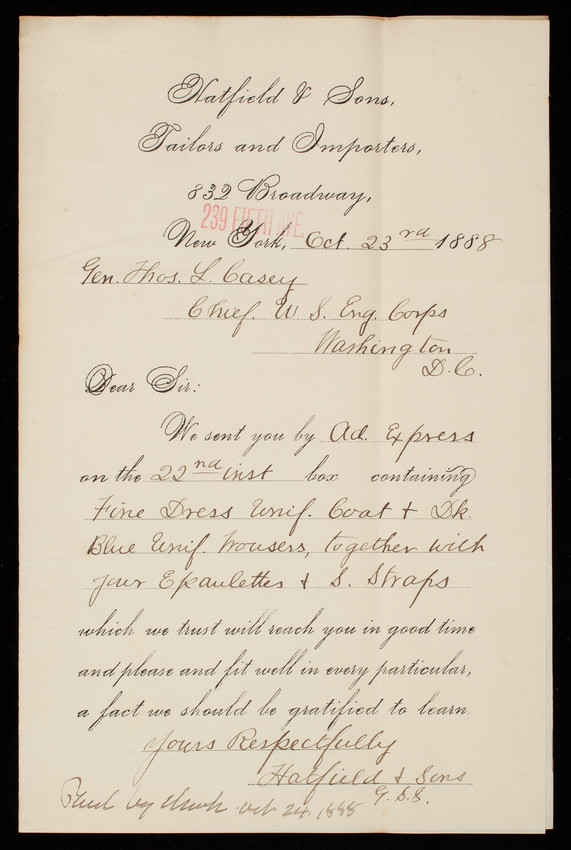 Hatfield & Sons,
Tailors and Importers,
832 Broadway,
239 FIFTH AVE.
New York, Oct. 23rd 1888
Gen. Thos. L. Casey
Chief. U S. Eng. Corps
Washington
D.C.
Dear Sir:
We sent you by Ad. Express
on the 22nd inst box containing
Fine Dress Unif. Coat + Dk.
Blue Unif. Trousers, together with
your Epaulettes + S. Straps
which we trust will reach you in good time
and please and fit well in every particular,
a fact we should be gratified to learn.
Yours Respectfully
Hatfield & Sons
G.D.S.
by Oct 24, 1888